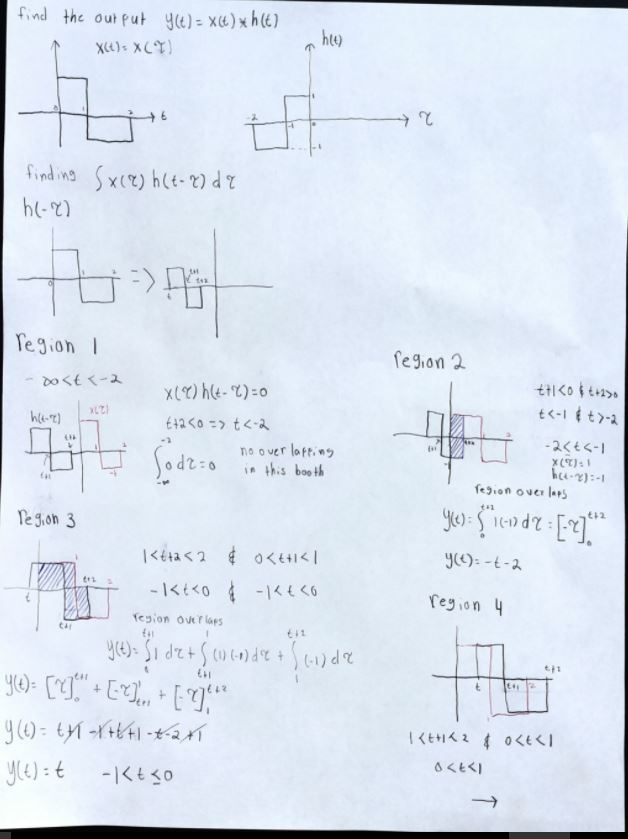 find the output y(t) = x(t) * h(t)
x(t) = x(τ)
h(t)
0 1 2 t
-2 -1 0 1 -1 τ
finding ∫ x(τ) h(t-τ) dτ
h(-τ)
0 1 2 => t t+1 t+2
region 1
-∞ < t < -2
x(τ) h(t-τ) = 0
t+2 < 0 => t < -2
∫_{-∞}^{-2} 0 dτ = 0
no overlapping
in this booth
h(t-τ) x(τ)
t+2 t+1 1 2 -1
region 2
t+1 < 0 & t+2 > 0
t < -1 & t > -2
-2 < t < -1
x(τ) = 1
h(t-τ) = -1
t+1 t+2 2 -1
region overlaps
y(t) = ∫_0^{t+2} 1(-1) dτ = [-τ]_0^{t+2}
y(t) = -t-2
region 3
1 < t+2 < 2 & 0 < t+1 < 1
-1 < t < 0 & -1 < t < 0
t 1 t+2 2 t+1
region overlaps
y(t) = ∫_t^{t+1} 1 dτ + ∫_{t+1}^1 (1)(-1) dτ + ∫_1^{t+2} (-1) dτ
y(t) = [τ]_0^{t+1} + [-τ]_{t+1}^1 + [-τ]_1^{t+2}
y(t) = t+1 -1+t+1 -t-2+1
y(t) = t -1 < t ≤ 0
region 4
t 1 t+1 2 t+2
1 < t+1 < 2 & 0 < t < 1
0 < t < 1
→